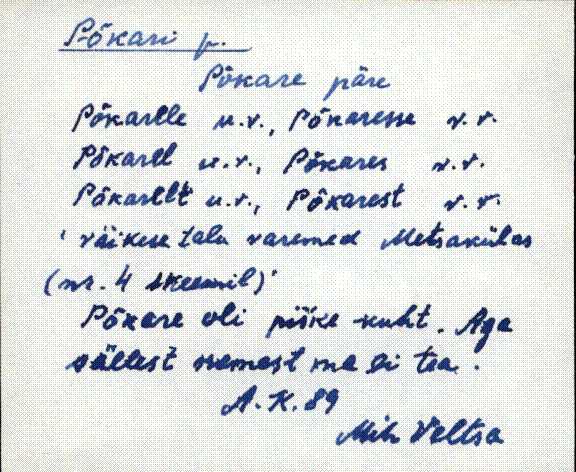 Põkari p.
Põkare päre
Põkarelle u.v., Põkaresse v.v.
Põkarell u.v., Põkares v.v.
Põkarellt u.v., Põkarest v.v.
' väikese talu varemed Metsakülas
(nr. 4 skeemil)'
Põkare oli piike kuht. Aga
sällest nemest ma ei tea.
A.K. 89
Mih Veltsa